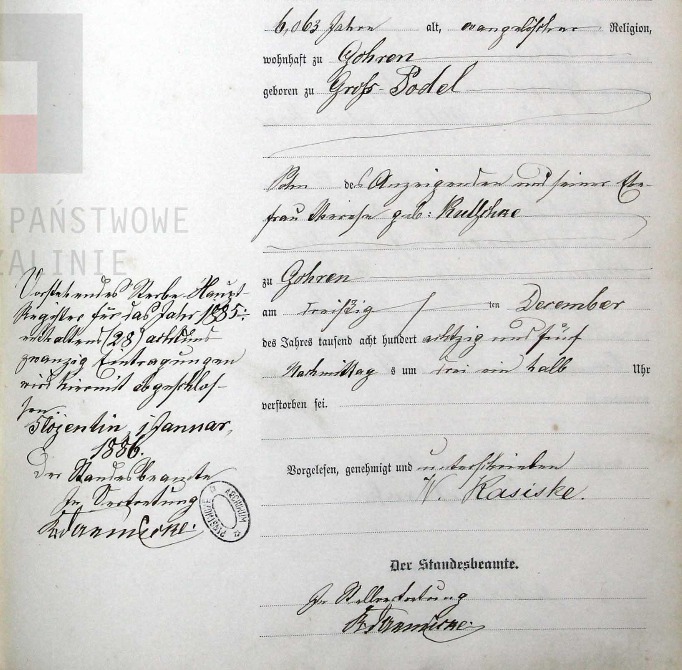 6,063 Jahre alt, evangelischer Religion,
wohnhaft zu Gohren
geboren zu Groß-Podel
Sohn des Anzeigenden und seiner Ehe-
frau geb: Kutschke
zu Gohren
am dreißig ten December
des Jahres tausend acht hundert achtzig und fünf
Nachmittags um drei ein halb Uhr
verstorben sei.
Vorgelesen, genehmigt und unterschrieben
W. Kasiske.
Der Standesbeamte.
In Stellvertretung
PAŃSTWOWE
ALINIE
Vorstehendes Sterbe-Haupt-
Register für das Jahr 1885:
enthaltend (28) acht und
zwanzig Eintragungen
wird hiermit abgeschlos-
sen.
Stojentin, 1 Januar,
1886.
Der Standesbeamte
In Vertretung
ARCHIWUM